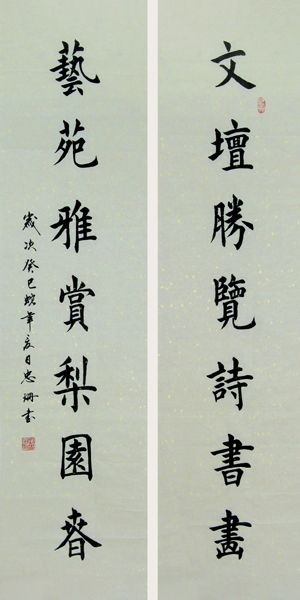 文壇勝覽詩書畵
藝苑雅賞梨園春
歲次癸巳蛇年夏日忠珊書